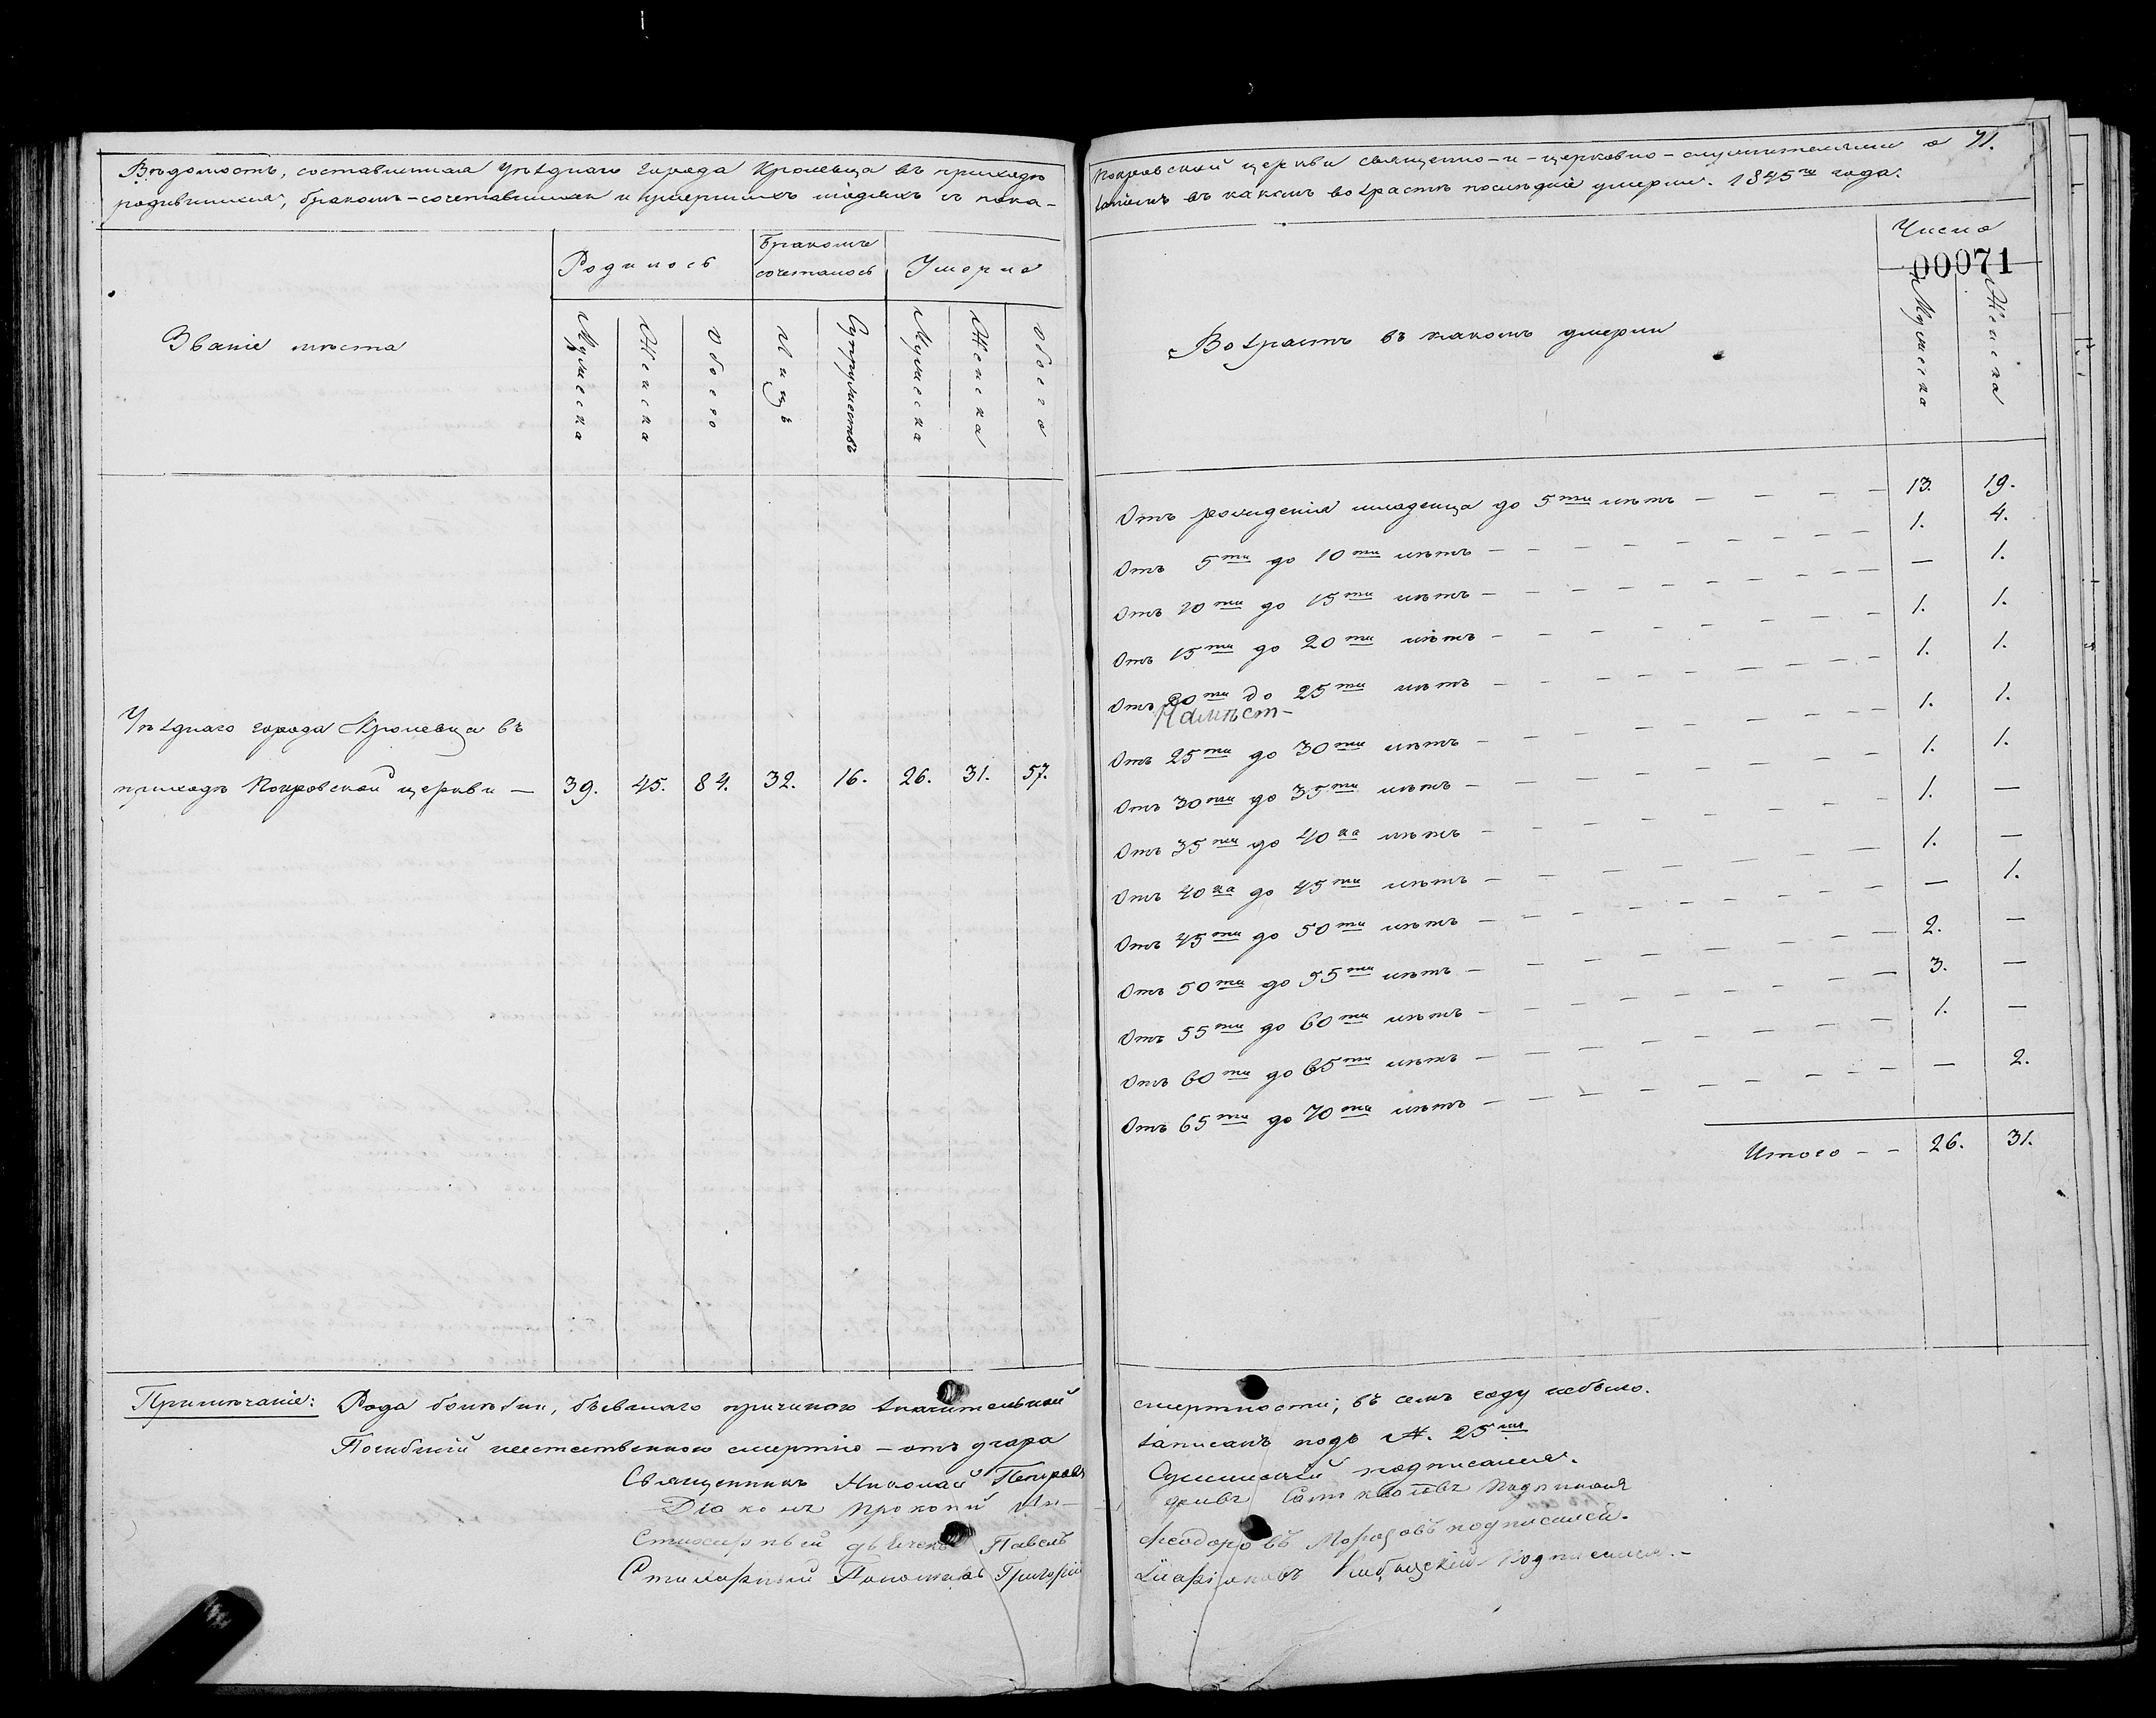 Вѣдомость, составленная Уѣзднаго города Кролевца въ приходѣ
родившихся, бракомъ-сочетавшихся и умершихъ людяхъ съ пока-
Званіе мѣста
Родилось
Бракомъ сочеталось
Умерло
Мужеска
Женска
Обоего
Лицъ
Супружествъ
Мужеска
Женска
Обоего
Уѣзднаго города Кролевца въ
приходѣ Покровской церкви — 39. 45. 84. 32. 16. 26. 31. 57.
Примѣчаніе: Рода болѣзни, бывшаго причиною значительной
Погибшій неестественною смертію – отъ угара
Священникъ Николай Петровъ
Діаконъ Прокопій
Стихарный дьячекъ Павелъ
Стихарный Пономарь Григорій
Покровской церкви священно-и-церковно-служителями о 71.
заніемъ въ какомъ возрастѣ послѣдніе умерли. 1845го года.
Число
00071
Возрастъ въ какомъ умерли
Мужеска
Женска
Отъ рожденія младенца до 5ти лѣтъ — 13. 19.
Отъ 5ти до 10ти лѣтъ — 1. 4.
Отъ 10ти до 15ти лѣтъ — — 1.
Отъ 15ти до 20ти лѣтъ — 1. 1.
Отъ 20ти до 25ти лѣтъ — 1. 1.
Отъ 25ти до 30ти лѣтъ — 1. 1.
Отъ 30ти до 35ти лѣтъ — 1. 1.
Отъ 35ти до 40ка лѣтъ — 1. —
Отъ 40ка до 45ти лѣтъ — 1. —
Отъ 45ти до 50ти лѣтъ — — 1.
Отъ 50ти до 55ти лѣтъ — 2. —
Отъ 55ти до 60ти лѣтъ — 3. —
Отъ 60ти до 65ти лѣтъ — 1. —
Отъ 65ти до 70ти лѣтъ — — 2.
Итого — — 26. 31.
смертности, въ семъ году небыло.
записанъ подъ №. 25мъ
подписался.
подписался
Феодоровъ Морозовъ подписался.
подписался.—